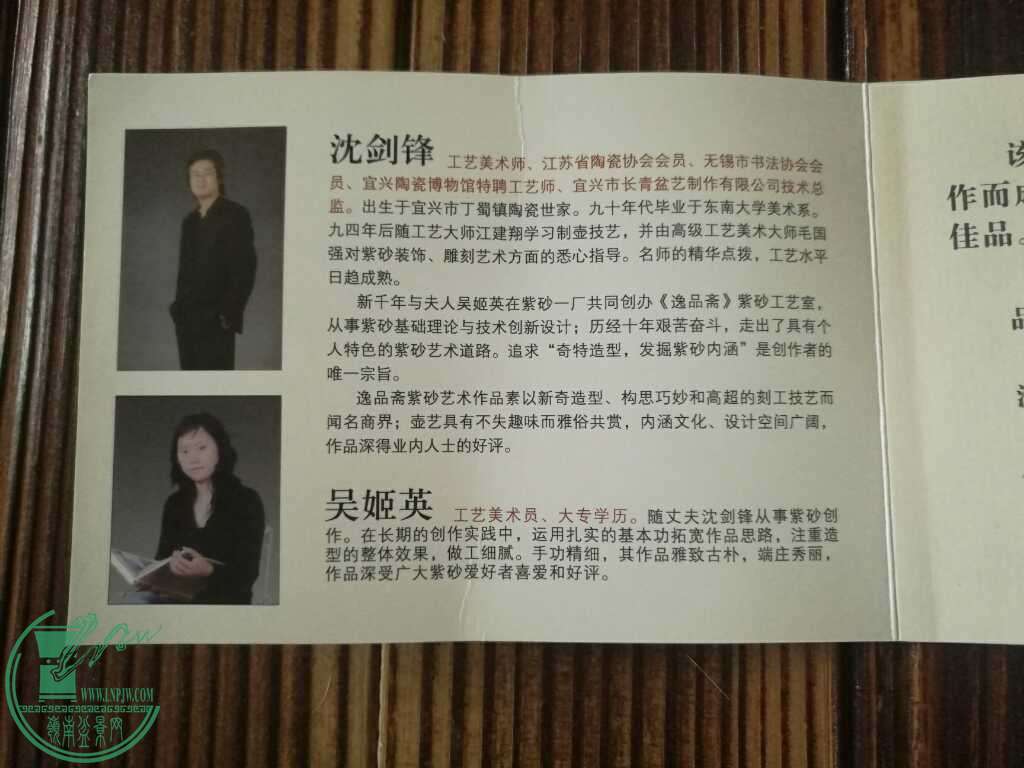 沈剑锋 工艺美术师、江苏省陶瓷协会会员、无锡市书法协会会
员、宜兴陶瓷博物馆特聘工艺师、宜兴市长青盆艺制作有限公司技术总
监。出生于宜兴市丁蜀镇陶瓷世家。九十年代毕业于东南大学美术系。
九四年后随工艺大师江建翔学习制壶技艺，并由高级工艺美术大师毛国
强对紫砂装饰、雕刻艺术方面的悉心指导。名师的精华点拨，工艺水平
日趋成熟。
新千年与夫人吴姬英在紫砂一厂共同创办《逸品斋》紫砂工艺室，
从事紫砂基础理论与技术创新设计；历经十年艰苦奋斗，走出了具有个
人特色的紫砂艺术道路。追求“奇特造型，发掘紫砂内涵”是创作者的
唯一宗旨。
逸品斋紫砂艺术作品素以新奇造型、构思巧妙和高超的刻工技艺而
闻名商界；壶艺具有不失趣味而雅俗共赏，内涵文化、设计空间广阔，
作品深得业内人士的好评。
吴姬英 工艺美术员、大专学历。随丈夫沈剑锋从事紫砂创
作。在长期的创作实践中，运用扎实的基本功拓宽作品思路，注重造
型的整体效果，做工细腻。手功精细，其作品雅致古朴，端庄秀丽，
作品深受广大紫砂爱好者喜爱和好评。
该
作而成
佳品。
品
WWW.LNPJW.COM
嶺南盆景网